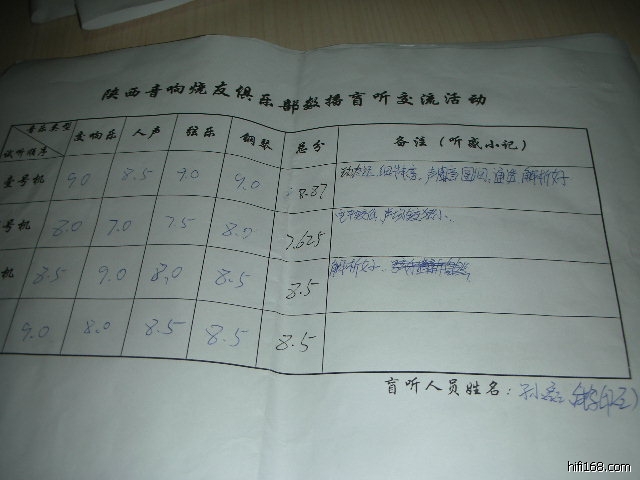 陕西音响烧友俱乐部数播盲听交流活动
音乐类型 交响乐 人声 弦乐 钢琴 总分 备注（听感小记）
试听顺序
壹号机 9.0 8.5 9.0 9.0 8.87 声 圆润，通透 解析好
号机 8.0 7.0 7.5 8.0 7.625
机 8.5 9.0 8.0 8.5 8.5 解析好
9.0 8.0 8.5 8.5 8.5
盲听人员姓名：孙
hifi168.com